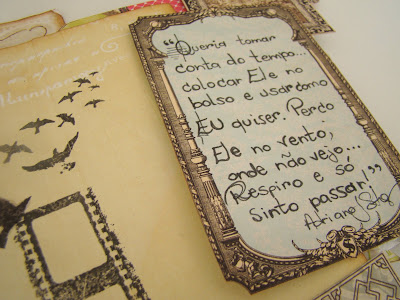 "Queria tomar
conta do tempo...
colocar Ele no
bolso e usar como
EU quiser. Perco
Ele no vento,
onde não vejo...
Respiro e só
sinto passar!"
Ariane